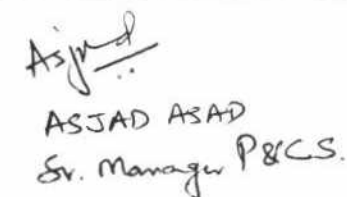 Asjad
ASJAD ASAD
Sr. Manager P&CS.